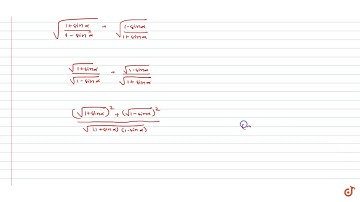 √((1+sinα)/(1-sinα)) - √((1-sinα)/(1+sinα))
√(1+sinα)/√(1-sinα) - √(1-sinα)/√(1+sinα)
((√(1+sinα))² + (√(1-sinα))²)/√((1+sinα)(1-sinα))